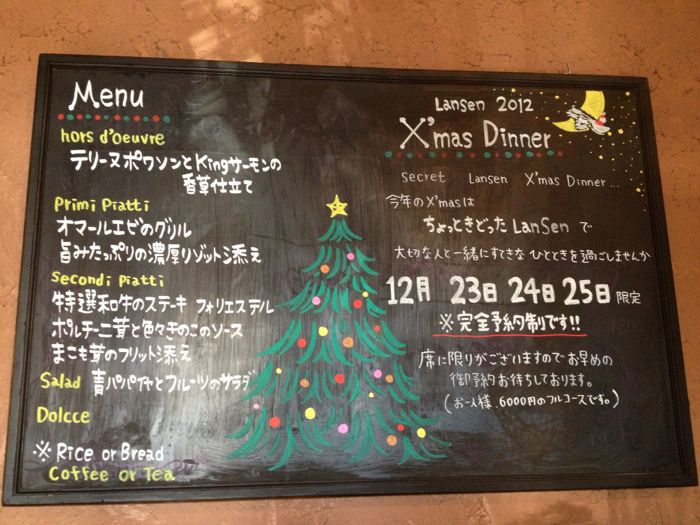 Menu
hors d'oeuvre
テリーヌポワソンとKingサーモンの
香草仕立て
Primi Piatti
オマールエビのグリル
旨みたっぷりの濃厚リゾット添え
Secondi Piatti
特選和牛のステーキ フォリエステル
ポルチーニ茸と色々きのこのソース
まこも茸のフリット添え
Salad 青パパイヤとフルーツのサラダ
Dolcce
※ Rice or Bread
Coffee or Tea
Lansen 2012
X'mas Dinner
Secret Lansen X'mas Dinner...
今年のX'masは
ちょっときどった LanSen で
大切な人と一緒にすてきな ひとときを過ごしませんか
12月 23日 24日 25日 限定
※完全予約制です!!
席に限りがございますので お早めの
御予約お待ちしております。
(お一人様、6000円のフルコースです。)